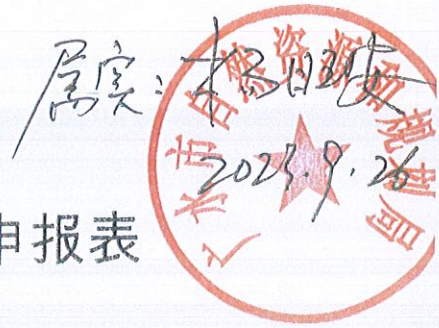 属实:
2023.9.26
水市自然资源和规划局
申报表